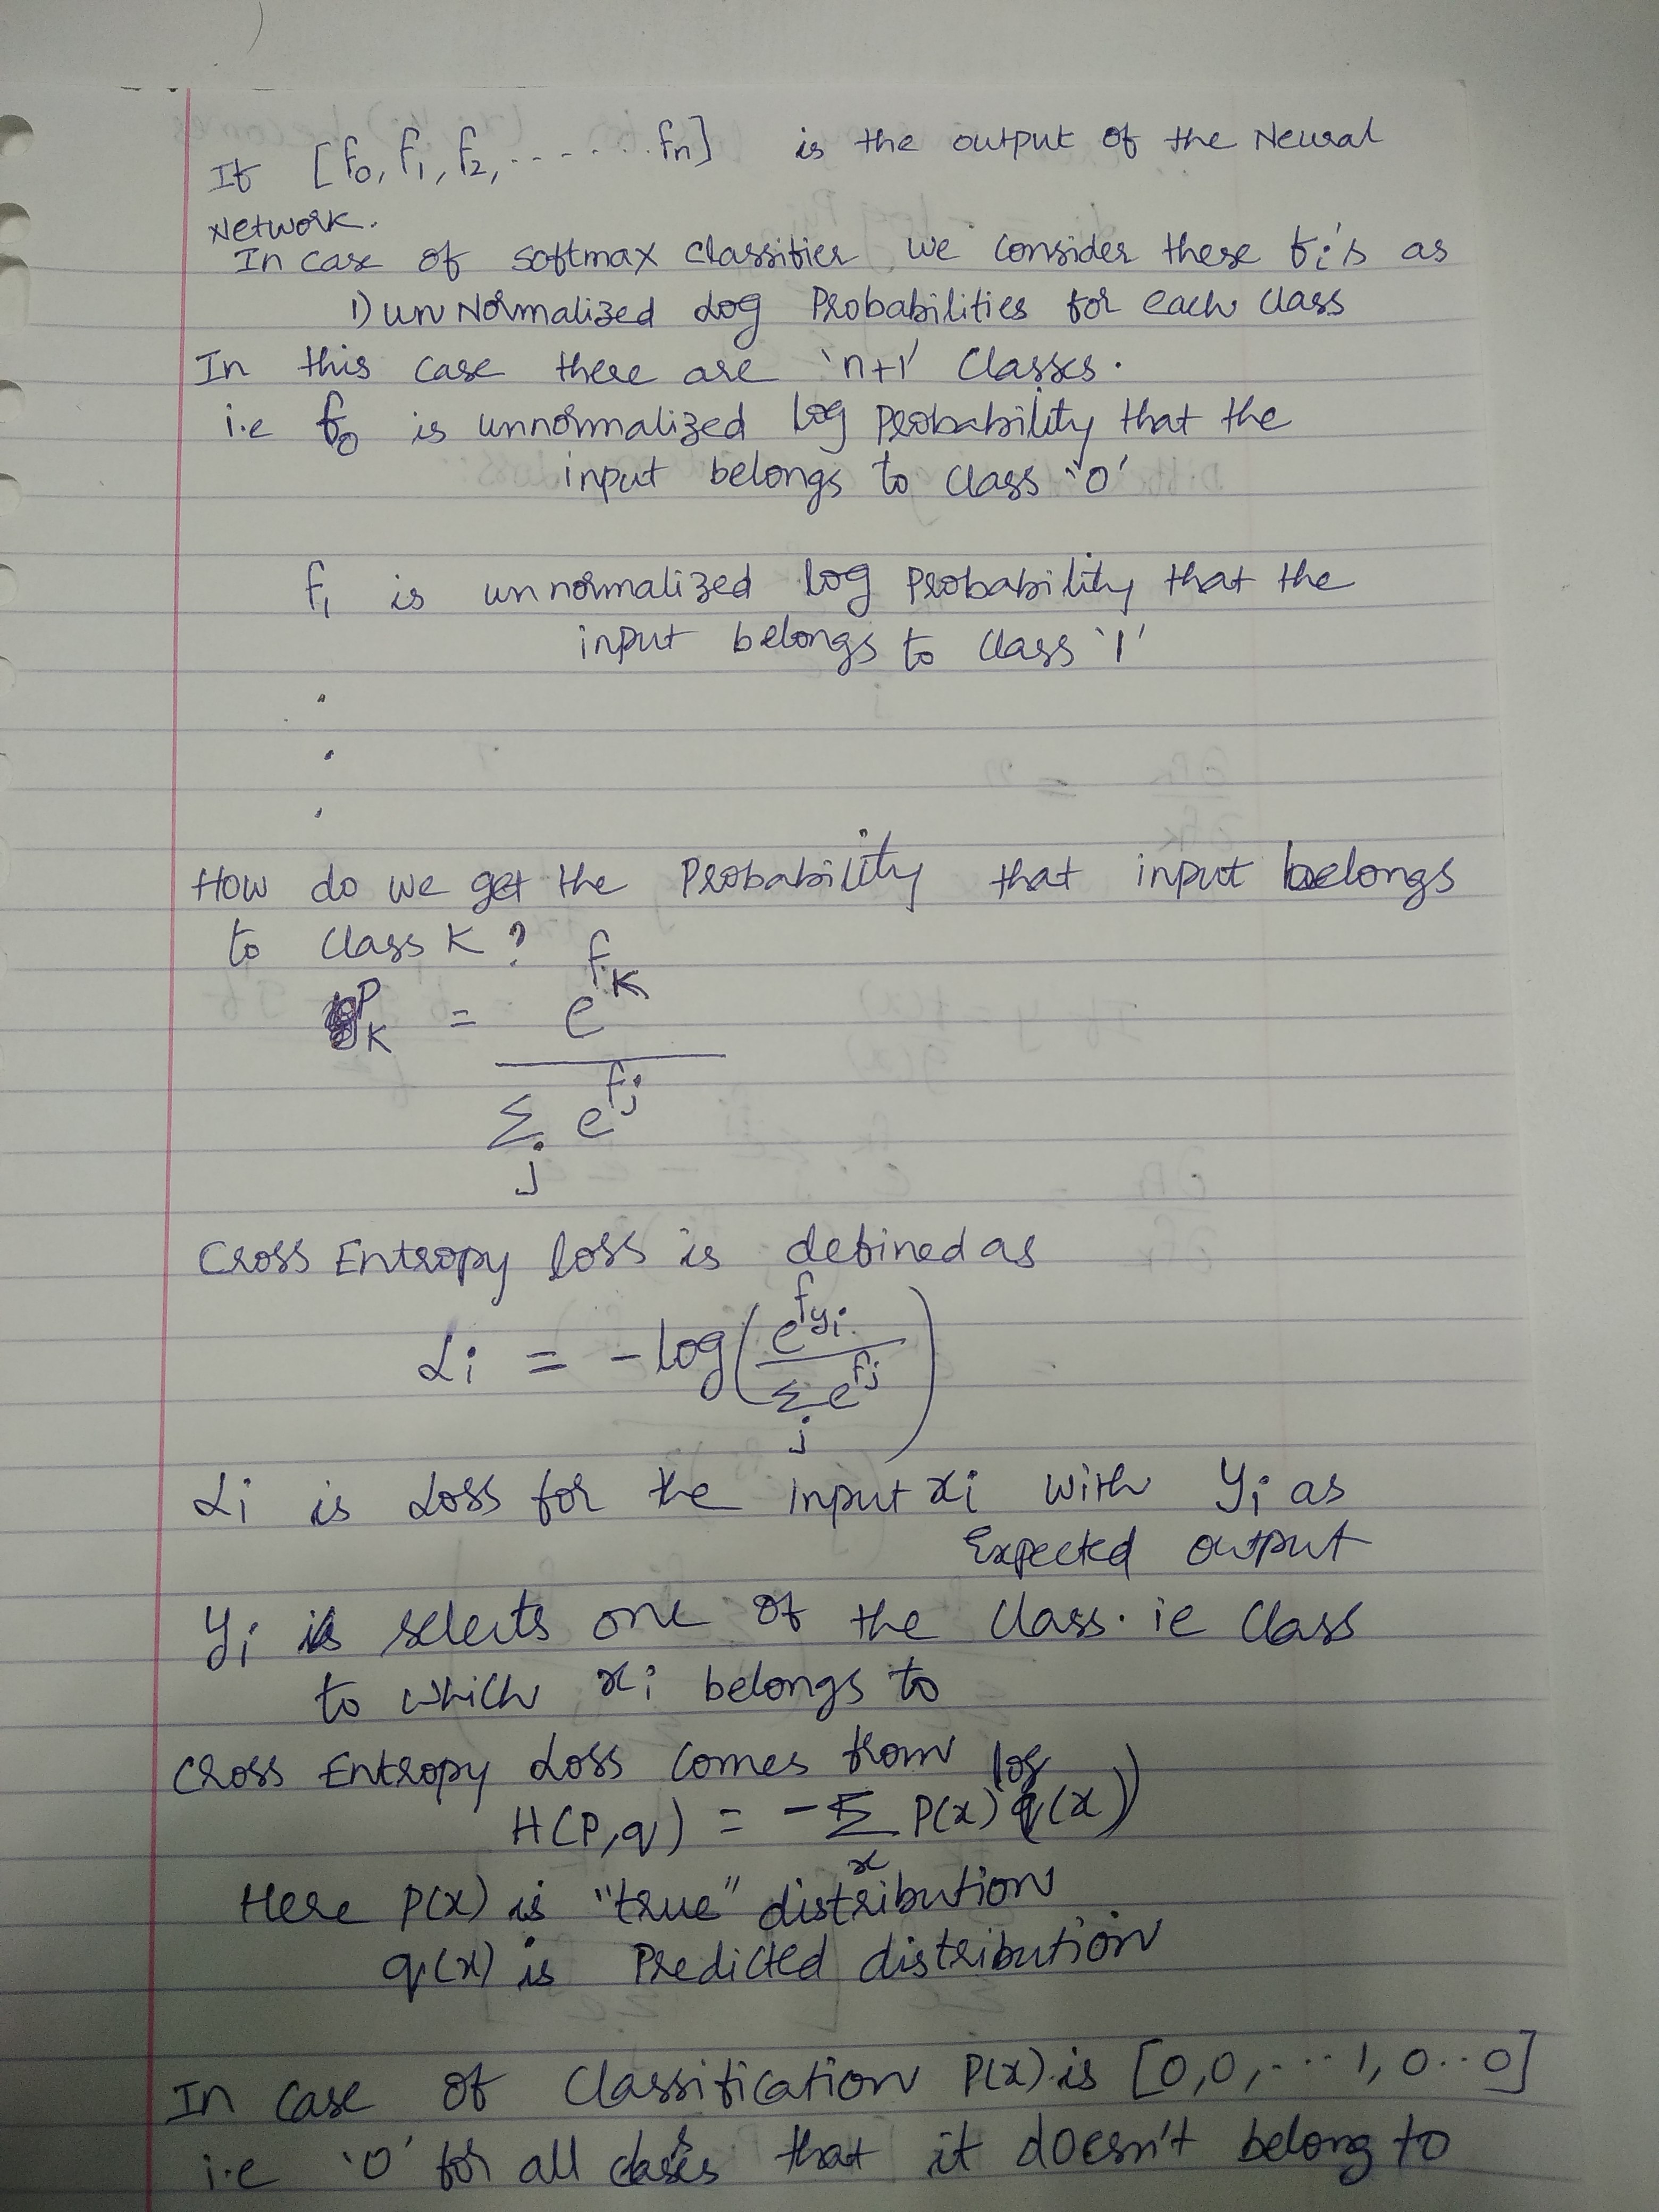 If [f0, f1, f2, ....... fn] is the output of the Neural
Network.
In case of softmax classifier we consider these fi's as
1) un Normalized Log Probabilities for each class
In this case there are 'n+1' classes.
i.e f0 is unnormalized log probability that the
input belongs to class '0'
f1 is un normalized log probability that the
input belongs to class '1'
.
.
.
How do we get the Probability that input belongs
to class K?
PK = e^fK / Σj e^fj
Cross Entropy loss is defined as
Li = -log(e^fyi / Σj e^fj)
Li is Loss for the input xi with yi as
Expected output
yi selects one of the class. ie class
to which xi belongs to
Cross Entropy Loss comes from
H(P,q) = -Σx P(x) log q(x))
Here P(x) is "true" distribution
q(x) is Predicted distribution
In case of Classification P(x) is [0,0,...1,0..0]
i.e '0' for all classes that it doesn't belong to